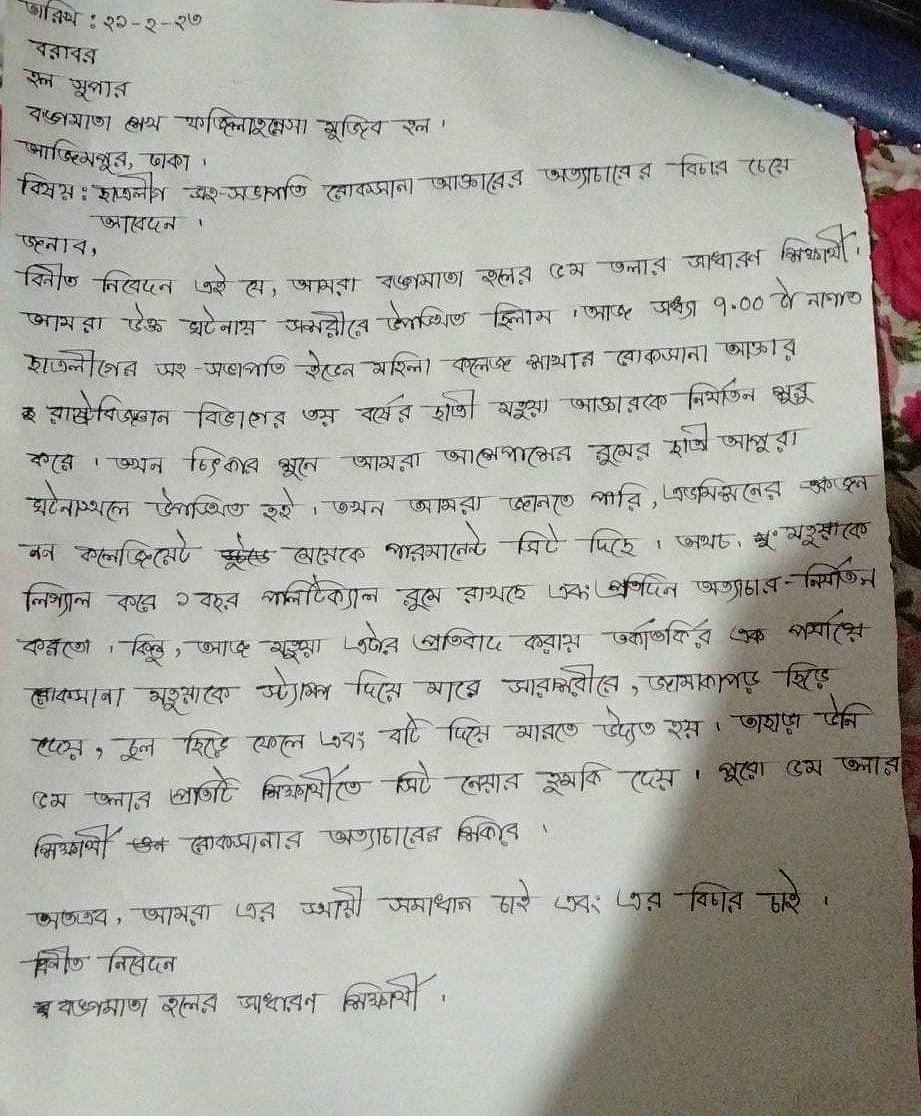 তারিখ : ২১-২-২৩
বরাবর
হল সুপার
বঙ্গমাতা শেখ ফজিলাতুন্নেসা মুজিব হল।
আজিমপুর, ঢাকা।
বিষয় : ছাত্রলীগ সহ-সভাপতি রোকসানা আক্তারের অত্যাচারের বিচার চেয়ে
আবেদন।
জনাব,
বিনীত নিবেদন এই যে, আমরা বঙ্গমাতা হলের ৫ম তলার সাধারণ শিক্ষার্থী।
আমরা উক্ত ঘটনায় সশরীরে উপস্থিত ছিলাম। আজ সন্ধ্যা ৭.০০ টা নাগাত
ছাত্রলীগের সহ-সভাপতি ইডেন মহিলা কলেজ শাখার রোকসানা আক্তার
রাষ্ট্রবিজ্ঞান বিভাগের ৩য় বর্ষের ছাত্রী মহুয়া আক্তারকে নির্যাতন শুরু
করে। তখন চিৎকার শুনে আমরা আশেপাশের রুমের ছাত্রী আপুরা
ঘটনাস্থলে উপস্থিত হই। তখন আমরা জানতে পারি, এডমিশনের একজন
নন কলেজিয়েট মেয়েকে পারমানেন্ট সিট দিছে। অথচ, মহুয়াকে
লিগ্যাল করে ১ বছর পলিটিক্যাল রুমে রাখছে এবং প্রতিদিন অত্যাচার-নির্যাতন
করতো। কিন্তু, আজ মহুয়া এটার প্রতিবাদ করায় তর্কাতর্কির এক পর্যায়ে
রোকসানা মহুয়াকে স্ট্যাম্প দিয়ে মারে সারাশরীরে, জামাকাপড় ছিড়ে
দেয়, চুল ছিড়ে ফেলে এবং বটি দিয়ে মারতে উদ্যত হয়। তাছাড়া উনি
৫ম তলার প্রতিটি শিক্ষার্থীতে সিট নেয়ার হুমকি দেয়। পুরো ৫ম তলার
শিক্ষার্থী রোকসানার অত্যাচারের শিকার।
অতএব, আমরা এর স্থায়ী সমাধান চাই এবং এর বিচার চাই।
বিনীত নিবেদন
বঙ্গমাতা হলের সাধারণ শিক্ষার্থী।